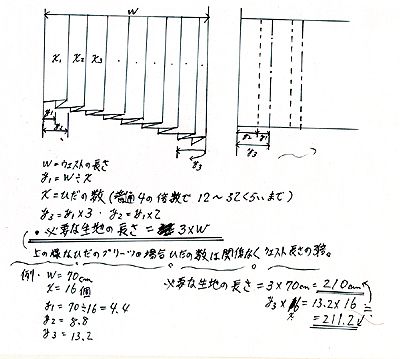 W
x1 x2 x3 . . . . .
y1
y2
y3
y2 y1
y3
W=ウェストの長さ
y1=W÷x
x=ひだの数(普通4の倍数で12〜32くらいまで)
y3=y1×3・y2=y1×2
・必要な生地の長さ=3×W
上の様なひだのプリーツの場合ひだの数は関係なくウェスト長さの3倍。
例・W=70cm
x=16個
y1=70÷16=4.4
y2=8.8
y3=13.2
必要な生地の長さ=3×70cm=210cm
y3×x=13.2×16
=211.2